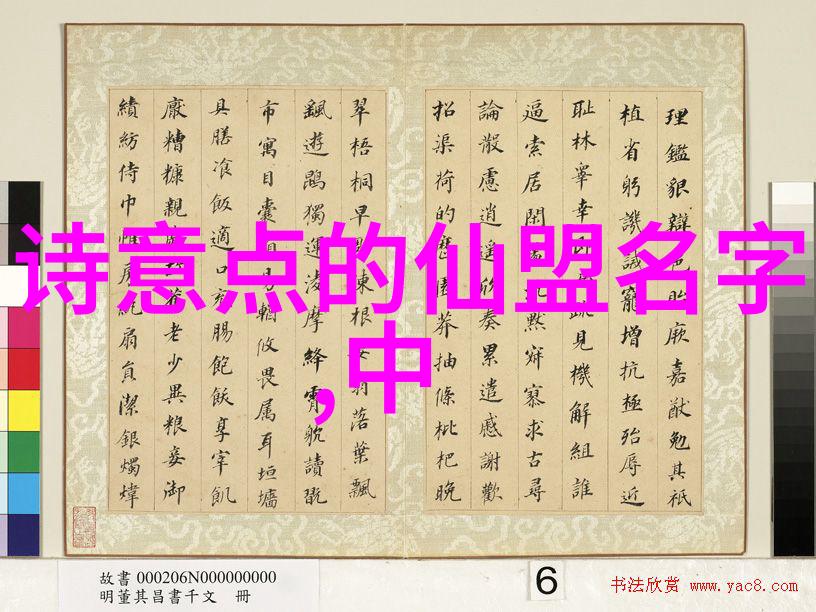 理鑑貌辯色貽厥嘉猷勉其祗
植省躬譏誡寵增抗極殆辱近
耻林睾幸即疏見機解組誰
逼索居閑沉默寂寥求古尋
論散慮逍遙欣奏累遣慼謝歡
招渠荷的歷園莽抽條枇杷晚
翠梧桐早陳根委翳落葉飄
飖遊鵾獨運淩摩絳霄躭讀翫
市寓目囊箱易輶攸畏属耳垣墻
具膳飡飯適口充腸飽飫享宰飢
厭糟糠親戚舊老少異粮妾御
績紡侍巾帷房紈扇員潔銀燭煒
诗意点的仙盟名字
,中
故書 000206N000000000
明董其昌書千文 冊
6
书法欣赏 www.yac8.com